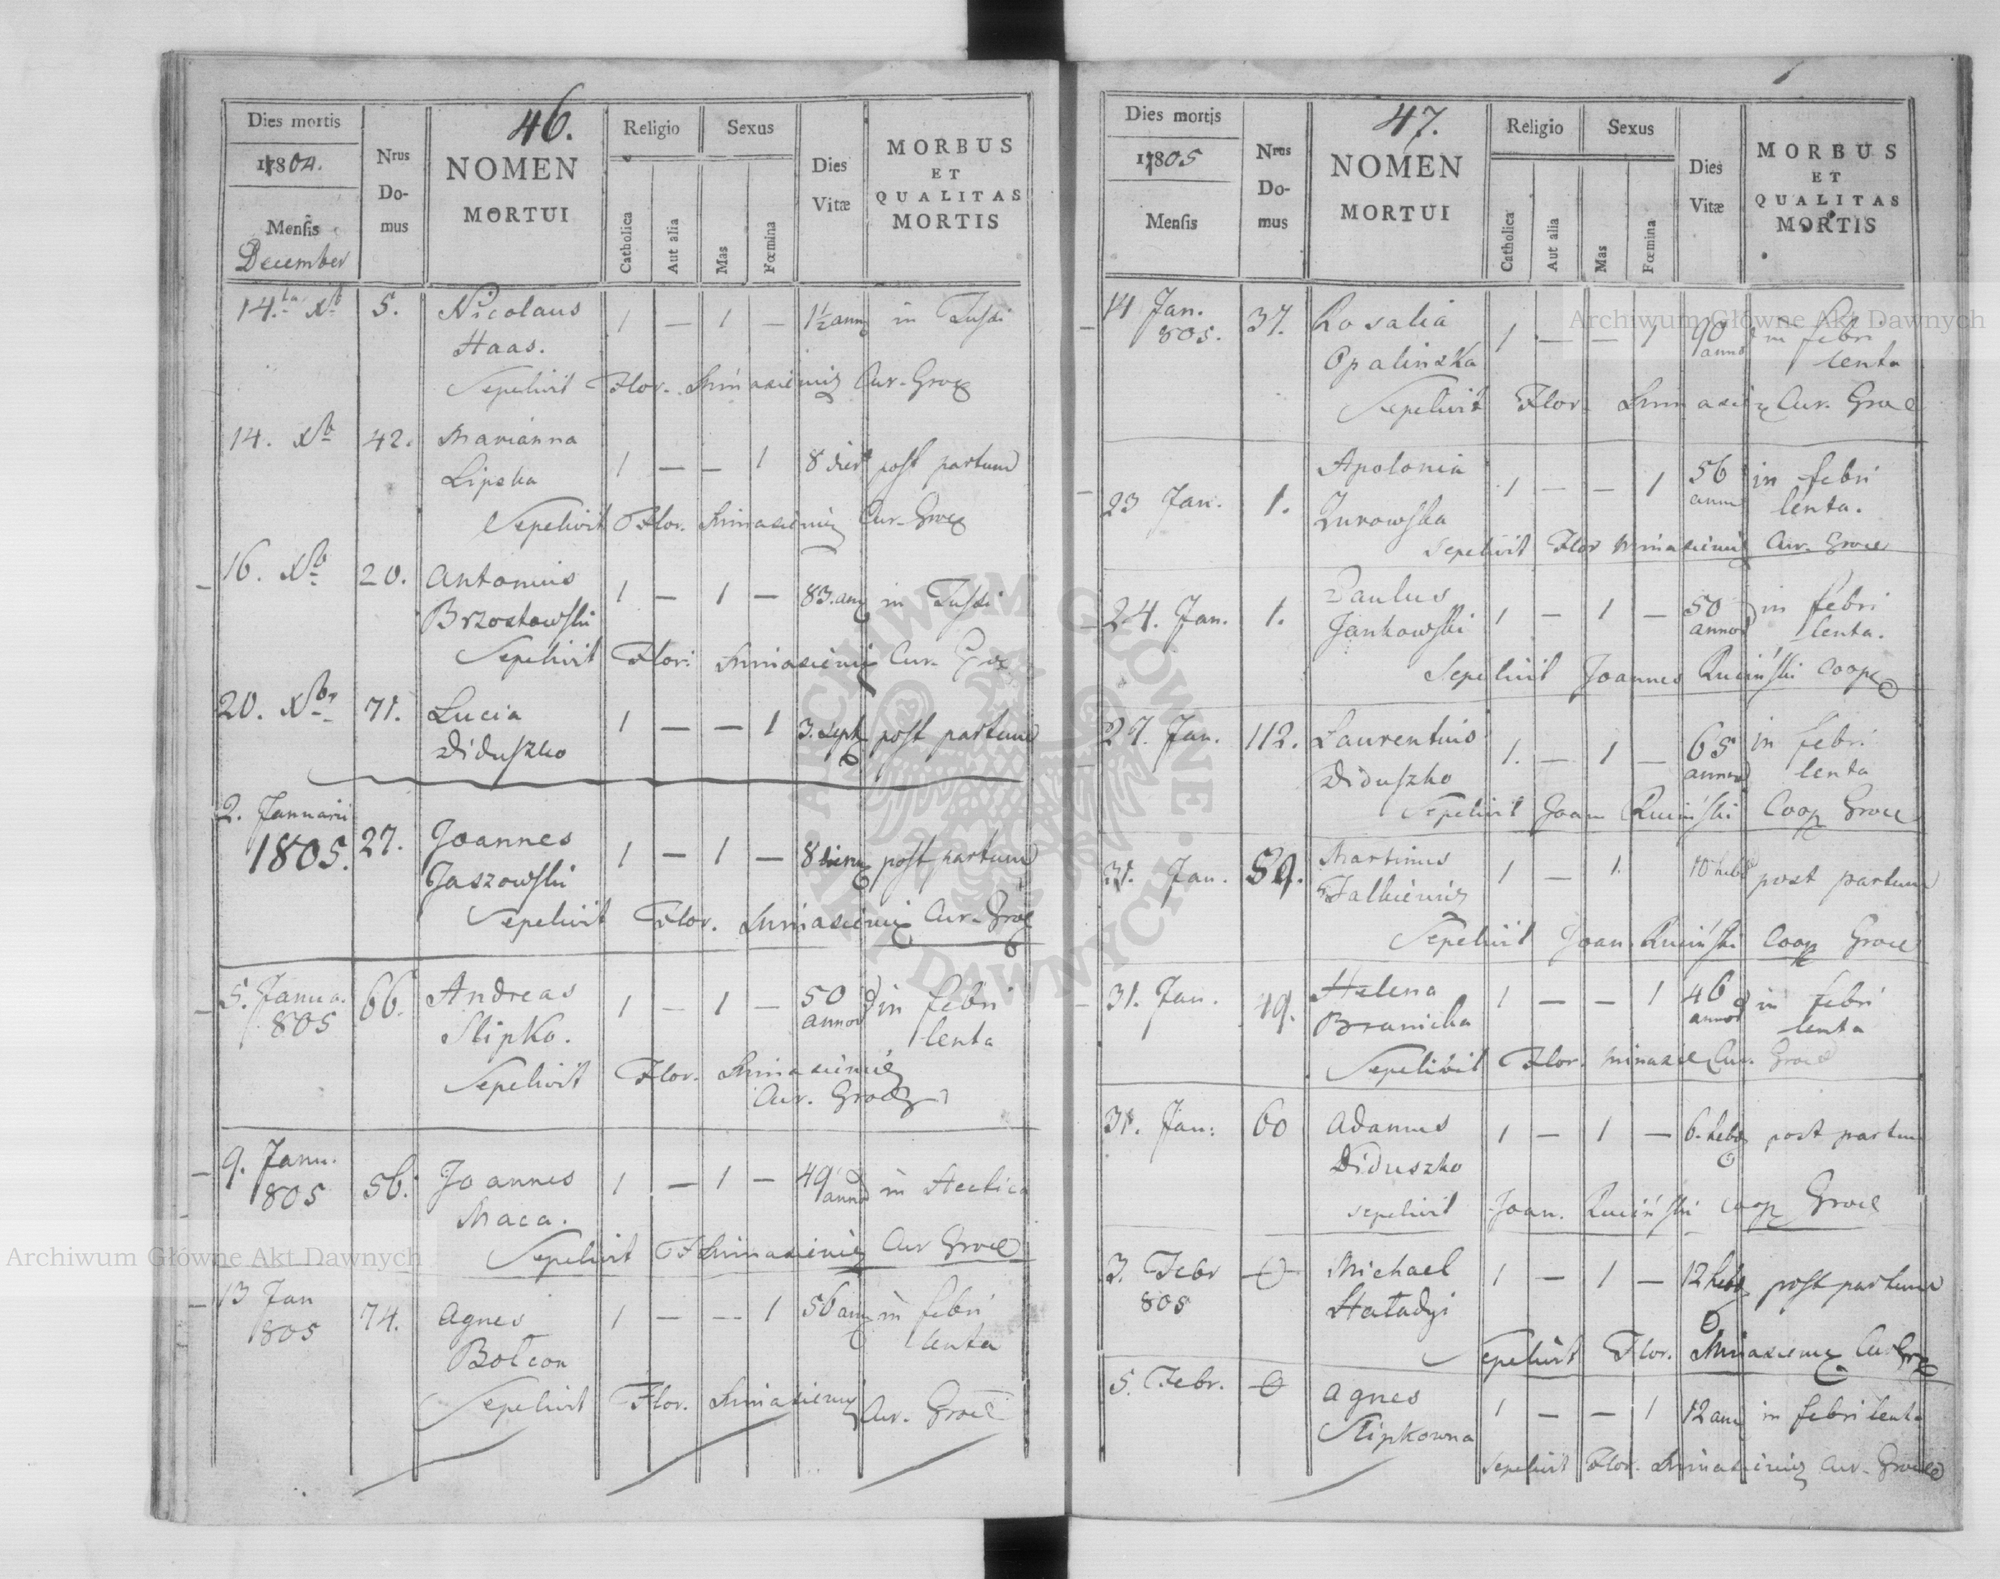 46.
Dies mortis
1804.
Mensis
December
Nrus
Do-
mus
NOMEN
MORTUI
Religio
Catholica
Aut alia
Sexus
Mas
Fœmina
Dies
Vitæ
MORBUS
ET
QUALITAS
MORTIS
14. Xb 5. Nicolaus 1 — 1 — 1½ ann in Tussi
Haas.
Sepelivit Flor. Cur.
14. Xb 42. Marianna 1 — — 1 8 dier post partum
Lipska
Sepelivit Flor. Cur.
16. Xb 20. Antonius 1 — 1 — 83. an in Tussi
Brzostowski
Sepelivit Flori Cur.
20. Xbr 71. Lucia 1 — — 1 3. sept post partum
Diduszko
2. Januarii
1805. 27. Joannes 1 — 1 — 8 dierum post partum
Jaszowski
Sepelivit Flor. Cur.
5. Janua. 66. Andreas 1 — 1 — 50 in febri
805 Slipko. annor lenta
Sepelivit Flor.
Cur. Grod
9. Janu. 56. Joannes 1 — 1 — 49 in Hectica
805 Maca. annor
Sepelivit F Cur Grod
13 Jan 74. Agnes 1 — — 1 56 an in febri
805 Bołcon lenta
Sepelivit Flor. Cur.
47.
Dies mortis
1805
Mensis
Nrus
Do-
mus
NOMEN
MORTUI
Religio
Catholica
Aut alia
Sexus
Mas
Fœmina
Dies
Vitæ
MORBUS
ET
QUALITAS
MORTIS
14 Jan. 37. Rosalia 1 — — 1 90 in febri
805. Opalinska annor lenta
Sepelivit Flor. Cur.
Apolonia 1 — — 1 56 in febri
23 Jan. 1. Zurowska annor lenta.
Sepelivit Flor Cur.
24. Jan. 1. Paulus 1 — 1 — 50 in febri
Jankowski annor lenta.
Sepelivit Joannes Ruciński Coop
27. Jan. 112. Laurentius 1. — 1 — 65 in febri
Diduszko annor lenta
Sepelivit Joan Ruciński Coop
31. Jan. 59. Martinus 1 — 1. 10 heb post partum
Sepelivit Joan. Ruciński Coop
31. Jan. 49. Helena 1 — — 1 46 in febri
Branicka annor lenta
Sepelivit Flor. Cur.
31. Jan. 60 Adamus 1 — 1 — 6. heb post partum
Diduszko
sepelivit Joan. Ruciński Coop
3. Febr 0 Michael 1 — 1 — 12 heb post partum
805
Sepelivit Flor. Cur
5. Febr. 0 Agnes 1 — — 1 12 ann in febri lenta
Slipkowna
Sepelivit Flor. Cur.
Archiwum Główne Akt Dawnych
Archiwum Główne Akt Dawnych
ARCHIWUM GŁÓWNE AKT DAWNYCH